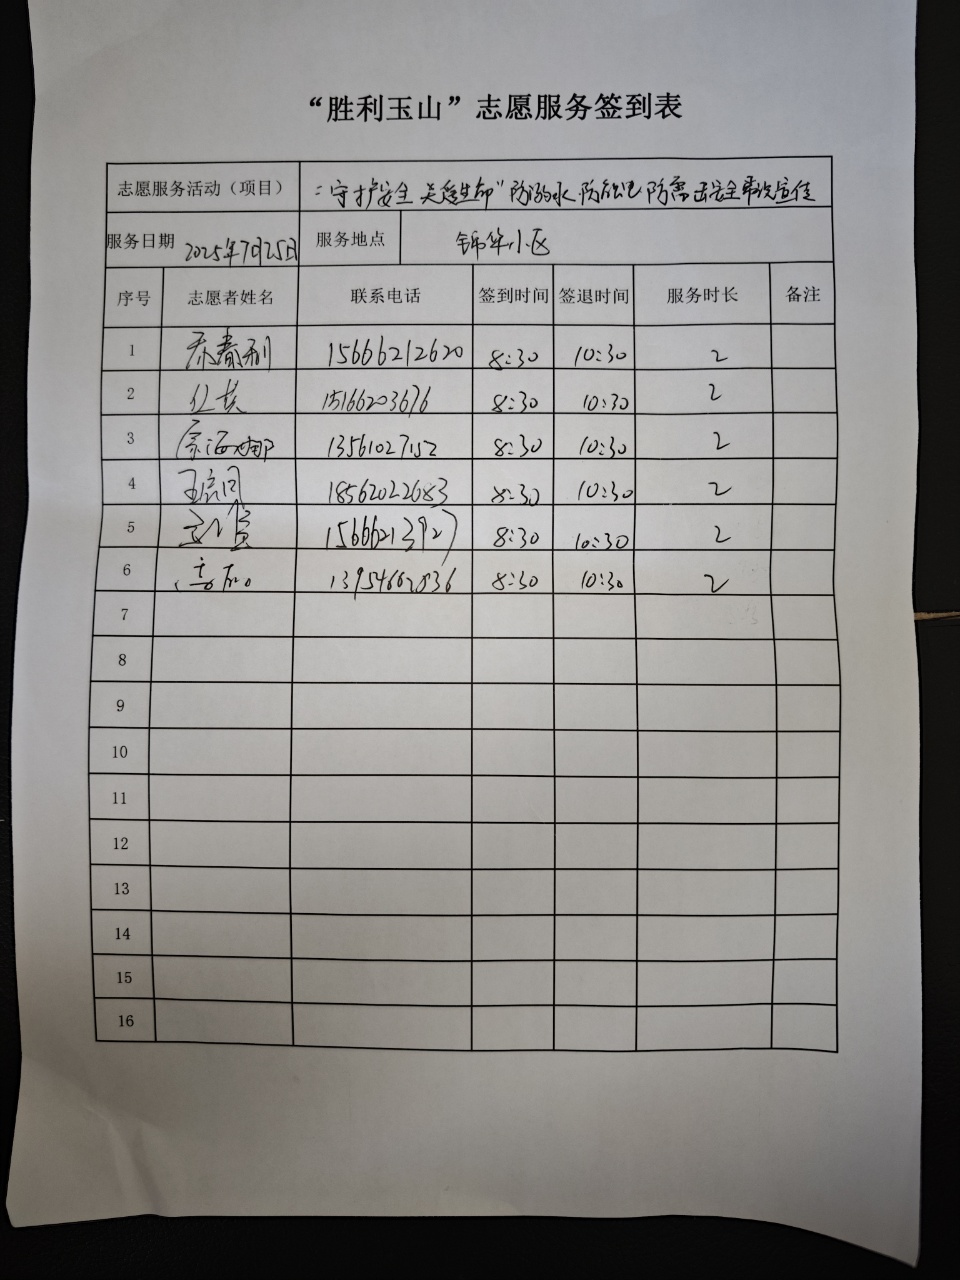 “胜利玉山”志愿服务签到表
志愿服务活动（项目） “守护安全 关爱生命”防溺水 防触电 防雷击安全事故宣传
服务日期 2025年7月25日 服务地点 锦华小区
序号 志愿者姓名 联系电话 签到时间 签退时间 服务时长 备注
1 15666212620 8:30 10:30 2
2 15166203676 8:30 10:30 2
3 海娜 13561027152 8:30 10:30 2
4 王 18562022683 8:30 10:30 2
5 15666213927 8:30 10:30 2
6 13954662836 8:30 10:30 2
7
8
9
10
11
12
13
14
15
16